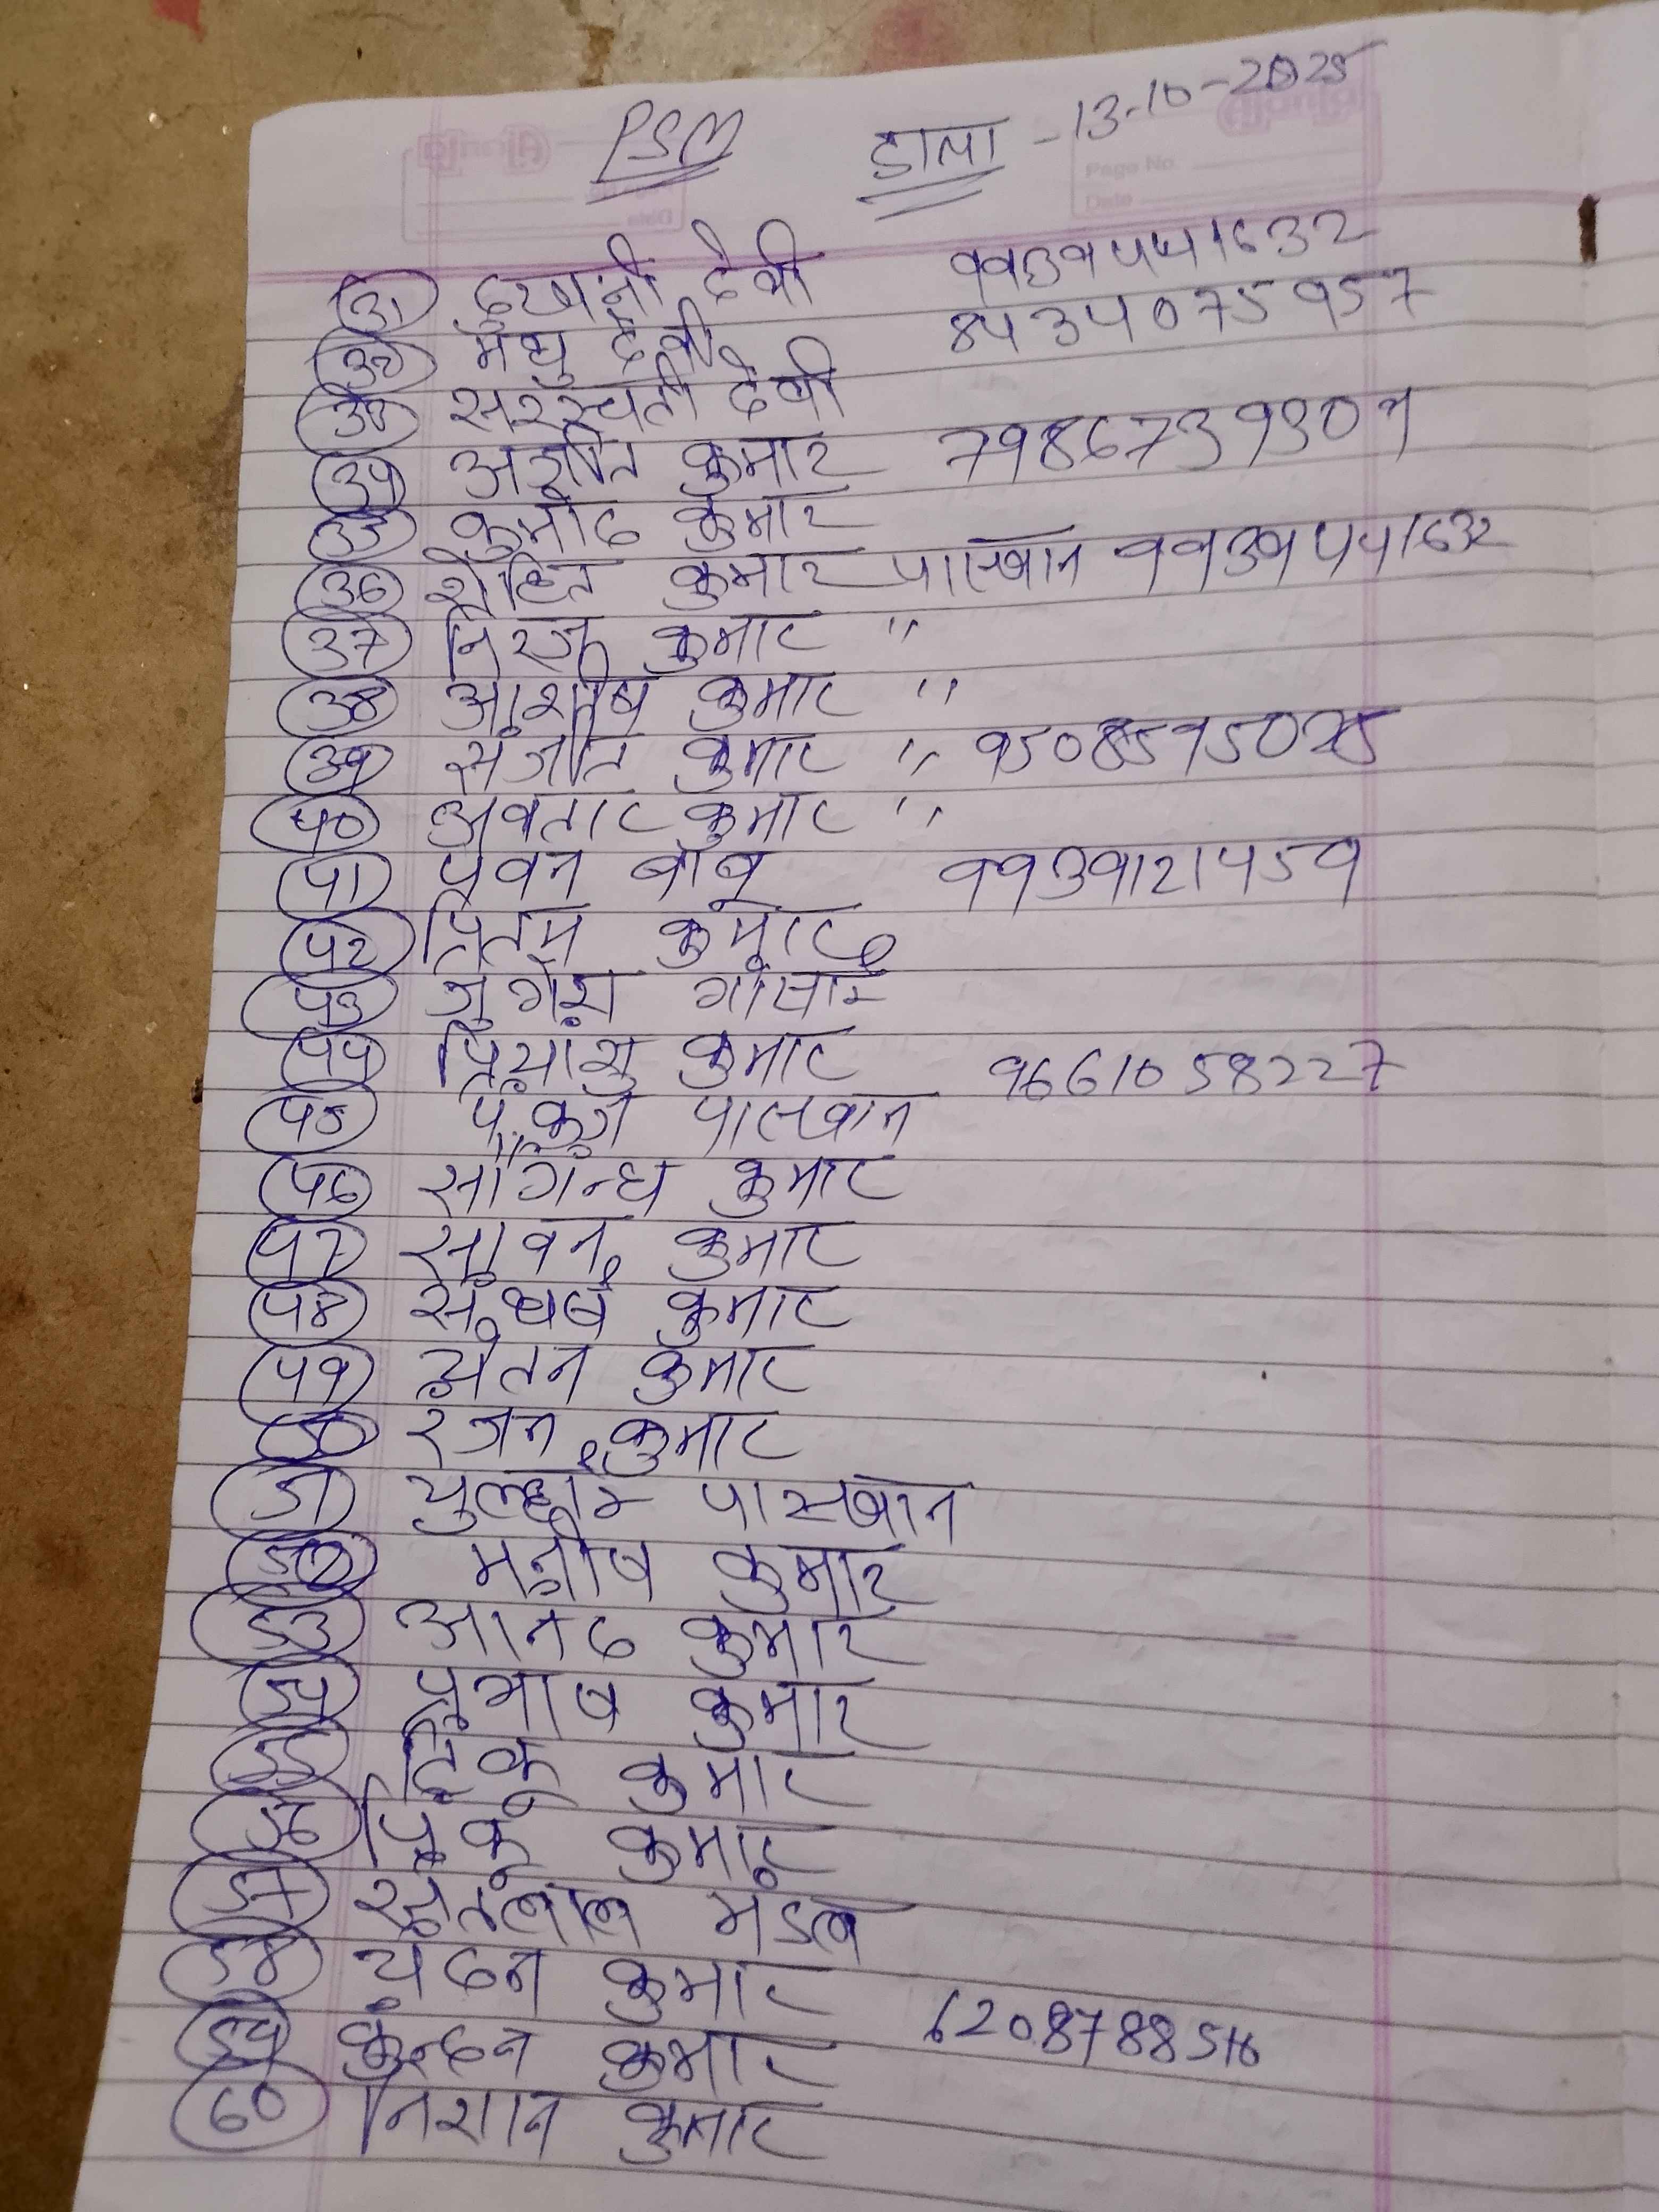 PSM डाला - 13-10-2025
31 दुखनी देवी 9939441632
32 मंधु देवी 8434075957
33 सरस्वती देवी
34 अजीत कुमार 7986739309
35 कुमोद कुमार
36 रोहित कुमार पासवान 9939441632
37 निरज कुमार "
38 आशीष कुमार "
39 संजीत कुमार " 9508595025
40 अवतार कुमार "
41 पवन बाबू 9939121459
42 प्रितम कुमार
43 जुगेश गोसाई
44 प्रियांशु कुमार 9661058227
45 पंकज पासवान
46 सौगन्ध कुमार
47 सावन कुमार
48 संघर्ष कुमार
49 चेतन कुमार
50 रंजन कुमार
51 चुल्हाई पासवान
52 मनीष कुमार
53 आनंद कुमार
54 प्रभाष कुमार
55 टिंकू कुमार
56 प्रिंकू कुमार
57 संतलाल मंडल
58 चंदन कुमार
59 कुन्दन कुमार 6208788516
60 निशान कुमार